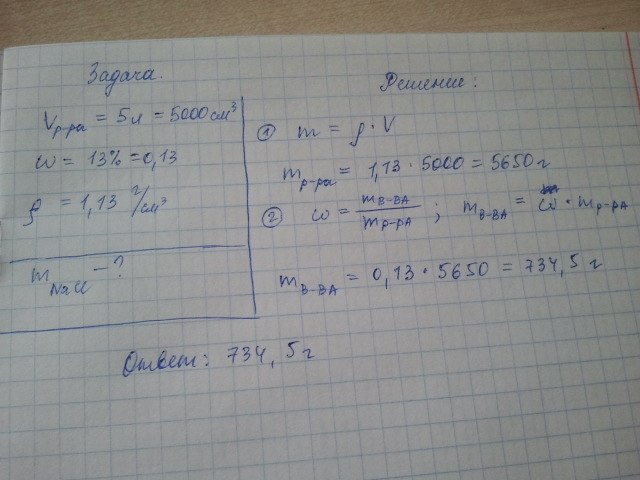 Задача.
Vр-ра = 5л = 5000 см³
ω = 13% = 0,13
ρ = 1,13 г/см³
mNaCl - ?
Решение:
① m = ρ · V
mр-ра = 1,13 · 5000 = 5650 г
② ω = mв-ва / mр-ра ; mв-ва = ω · mр-ра
mв-ва = 0,13 · 5650 = 734,5 г
Ответ: 734,5 г